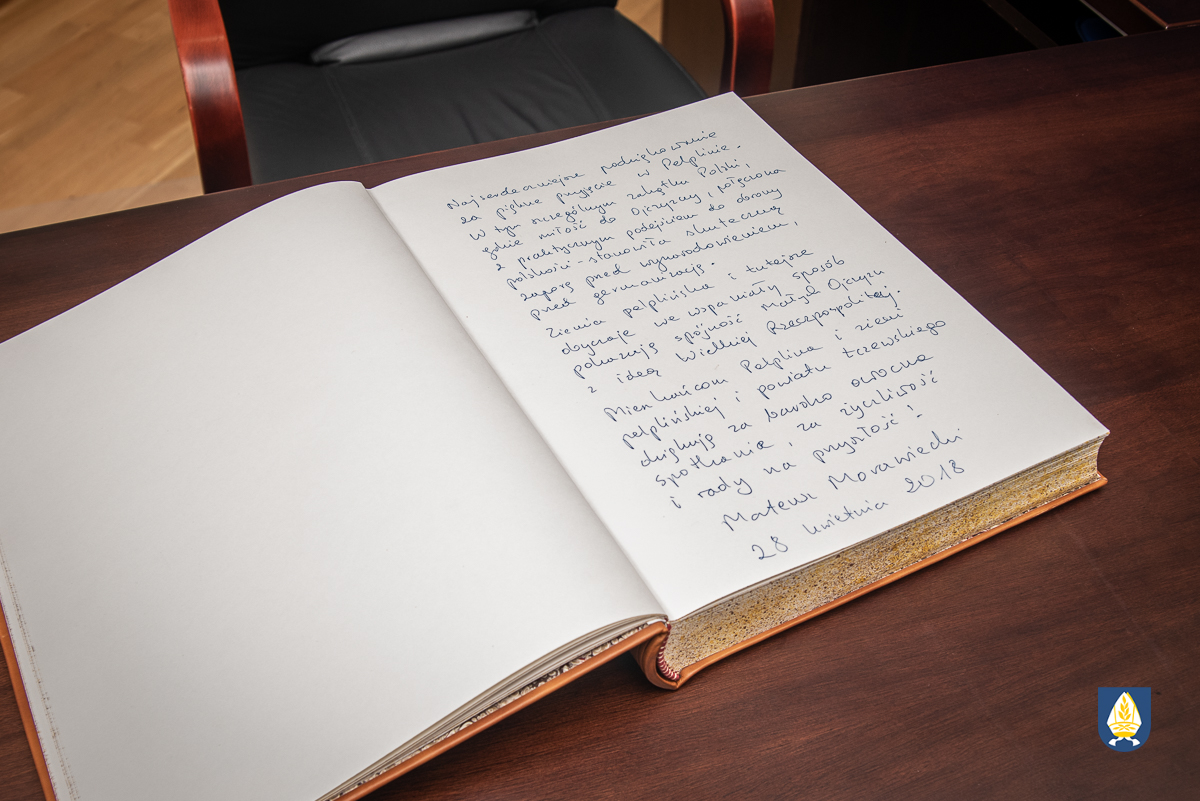 Najserdeczniejsze podziękowanie
za piękne przyjęcie w Pelplinie.
W tym szczególnym zakątku Polski,
gdzie miłość do Ojczyzny, połączona
z praktycznym podejściem do obrony
polskości - stanowiła skuteczną
zaporę przed wynarodowieniem,
przed germanizacją.
Ziemia pelplińska i tutejsze
obyczaje we wspaniały sposób
pokazują spójność małych Ojczyzn
z ideą Wielkiej Rzeczpospolitej.
Mieszkańcom Pelplina i ziemi
pelplińskiej i powiatu tczewskiego
dziękuję za bardzo owocne
spotkanie, za życzliwość
i rady na przyszłość!
Mateusz Morawiecki
28 kwietnia 2018